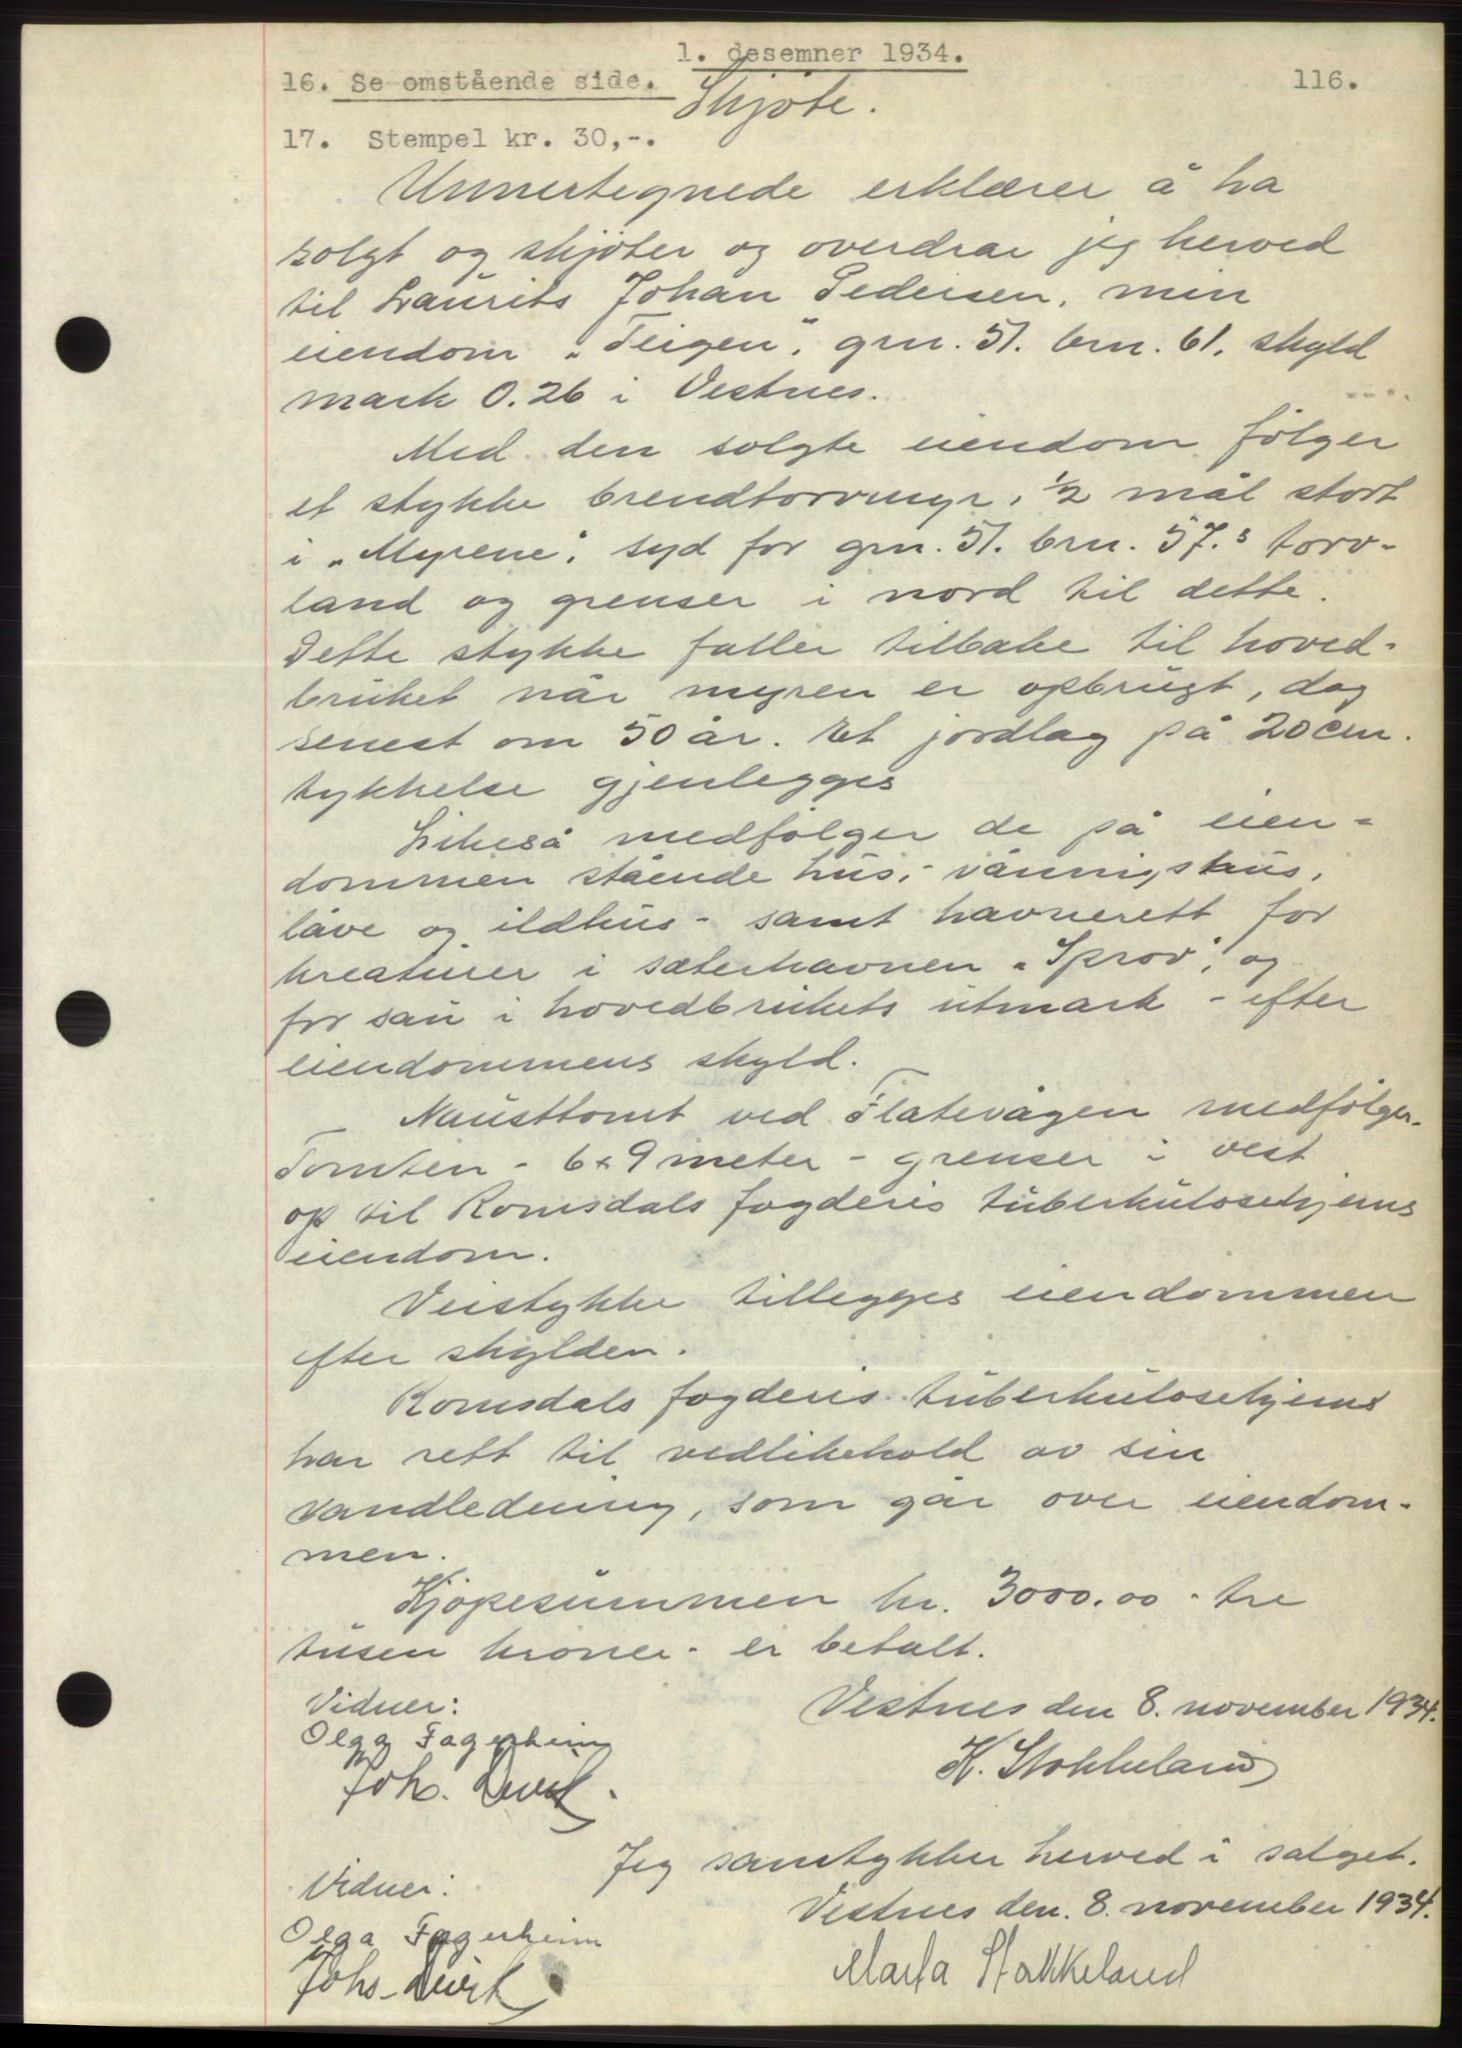 1. desemner 1934.
16. Se omstående side.
116.
Skjøte.
17. Stempel kr. 30,-.
Unnertegnede erklærer å ha
solgt og skjøter og overdrar jeg herved
til Laurits Johan Pedersen, min
eiendom „Teigen", grn. 51. brn. 61, skyld
mark 0.26 i Vestnes.
Med den solgte eiendom følger
et stykke brendtorvmyr, 1/2 mål stort
i „Myrene", syd for grn. 51. brn. 57.s torv-
land og grenser i nord til dette.
Dette stykke faller tilbake til hoved-
bruket når myren er opbrugt, dog
senest om 50 år. Et jordlag på 20 cm.
tykkelse gjenlegges
Likeså medfølger de på eien-
dommen stående hus, - våningshus,
låve og ildhus - samt havnerett for
kreaturer i sæterhavnen „Sprov", og
for sau i hovedbrukets utmark - efter
eiendommens skyld.
Nausttomt ved Flatevågen medfølger.
Tomten - 6 x 9 meter - grenser i vest
op til Romsdals fogderis tuberkulosehjems
eiendom.
Veistykke tillegges eiendommen
efter skylden.
Romsdals fogderis tuberkulosehjems
har rett til vedlikehold av sin
vandledning, som går over eiendom-
men.
Kjøpesummen kr. 3000.00 - tre
tusen kroner - er betalt.
Vidner:
Vestnes den 8. november 1934.
Olga Fagerheim
K. Stokkeland
Johs.
Jeg samtykker herved i salget.
Vidner:
Vestnes den. 8. november 1934.
Olga Fagerheim
Marta Stokkeland
Johs.